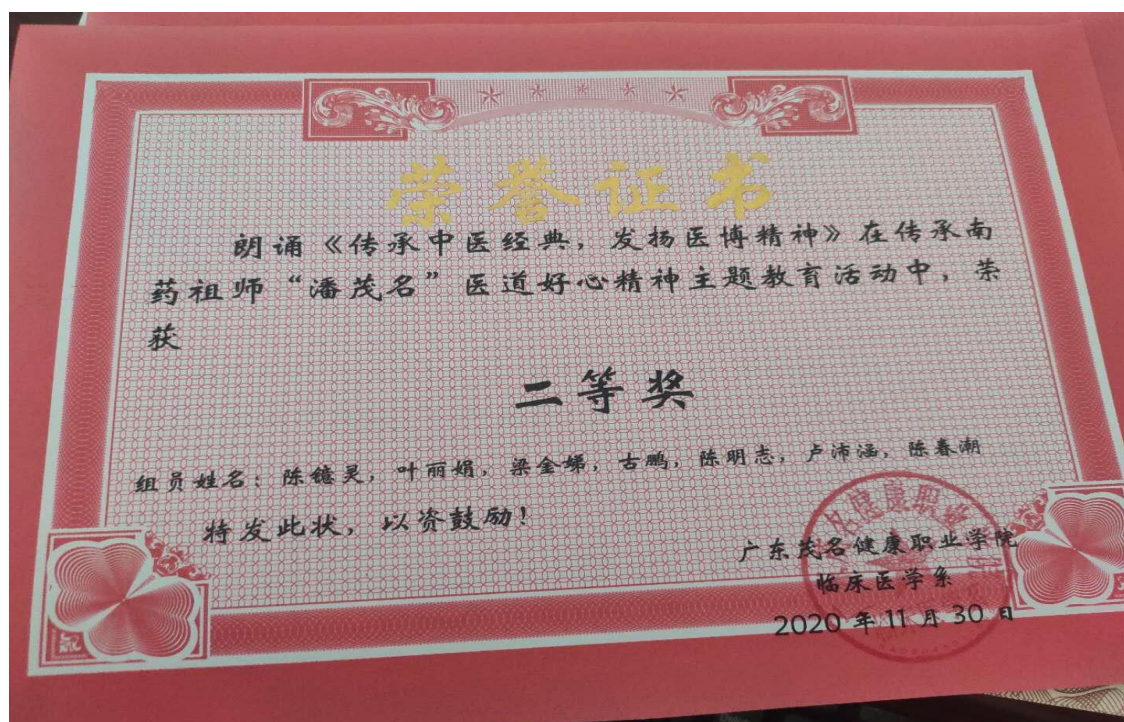 荣誉证书
朗诵《传承中医经典，发扬医博精神》在传承南
药祖师“潘茂名”医道好心精神主题教育活动中，荣
获
二等奖
组员姓名：陈镱灵，叶丽娟，梁金娣，古鹏，陈明志，卢沛涵，陈春潮
特发此状，以资鼓励！
广东茂名健康职业学院
临床医学系
2020年11月30日